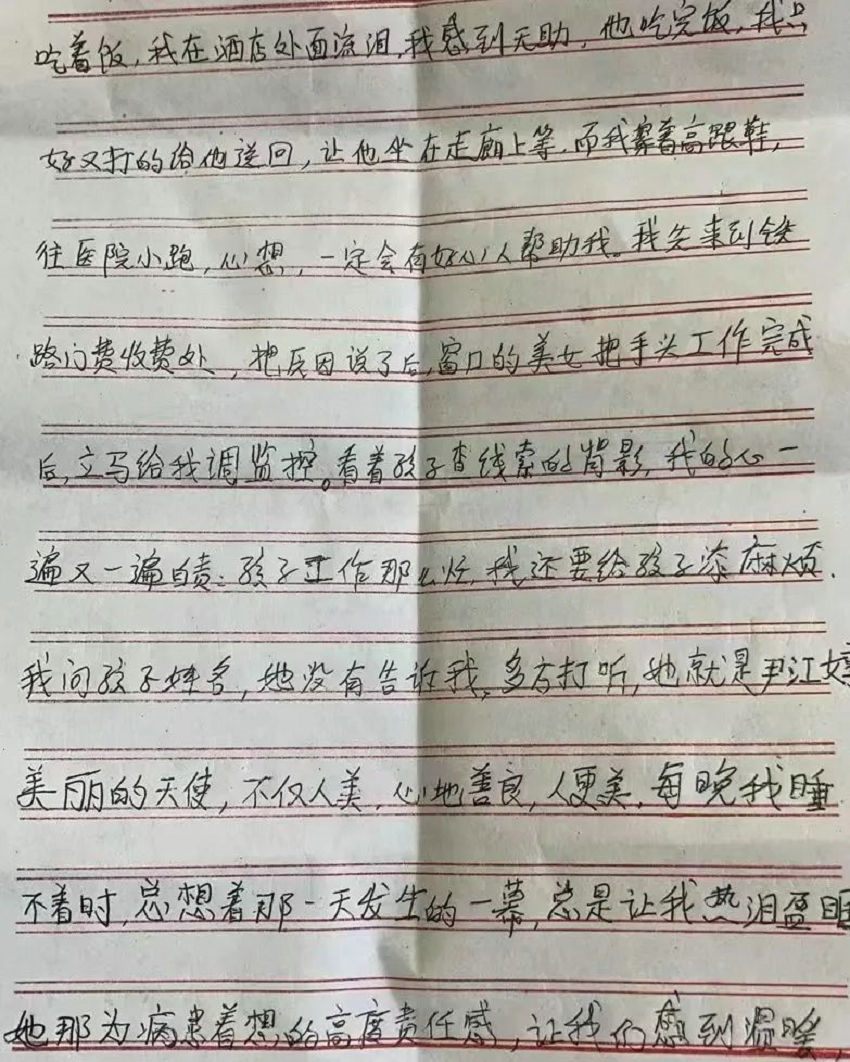 吃着饭，我在酒店外面流泪，我感到无助，他吃完饭，我只
好又打的给他送回，让他坐在走廊上等，而我穿着高跟鞋，
往医院小跑，心想，一定会有好心人帮助我。我先来到铁
路门费收费处，把原因说了后，窗口的美女把手头工作完成
后，立马给我调监控。看着孩子查线索的背影，我的心一
遍又一遍自责：孩子工作那么忙，我还要给孩子添麻烦．
我问孩子姓名，她没有告诉我，多方打听，她就是尹江婷
美丽的天使，不仅人美，心地善良，人更美，每晚我睡
不着时，总想着那一天发生的一幕，总是让我热泪盈眶
她那为病患着想的高度责任感，让我们感到温暖，